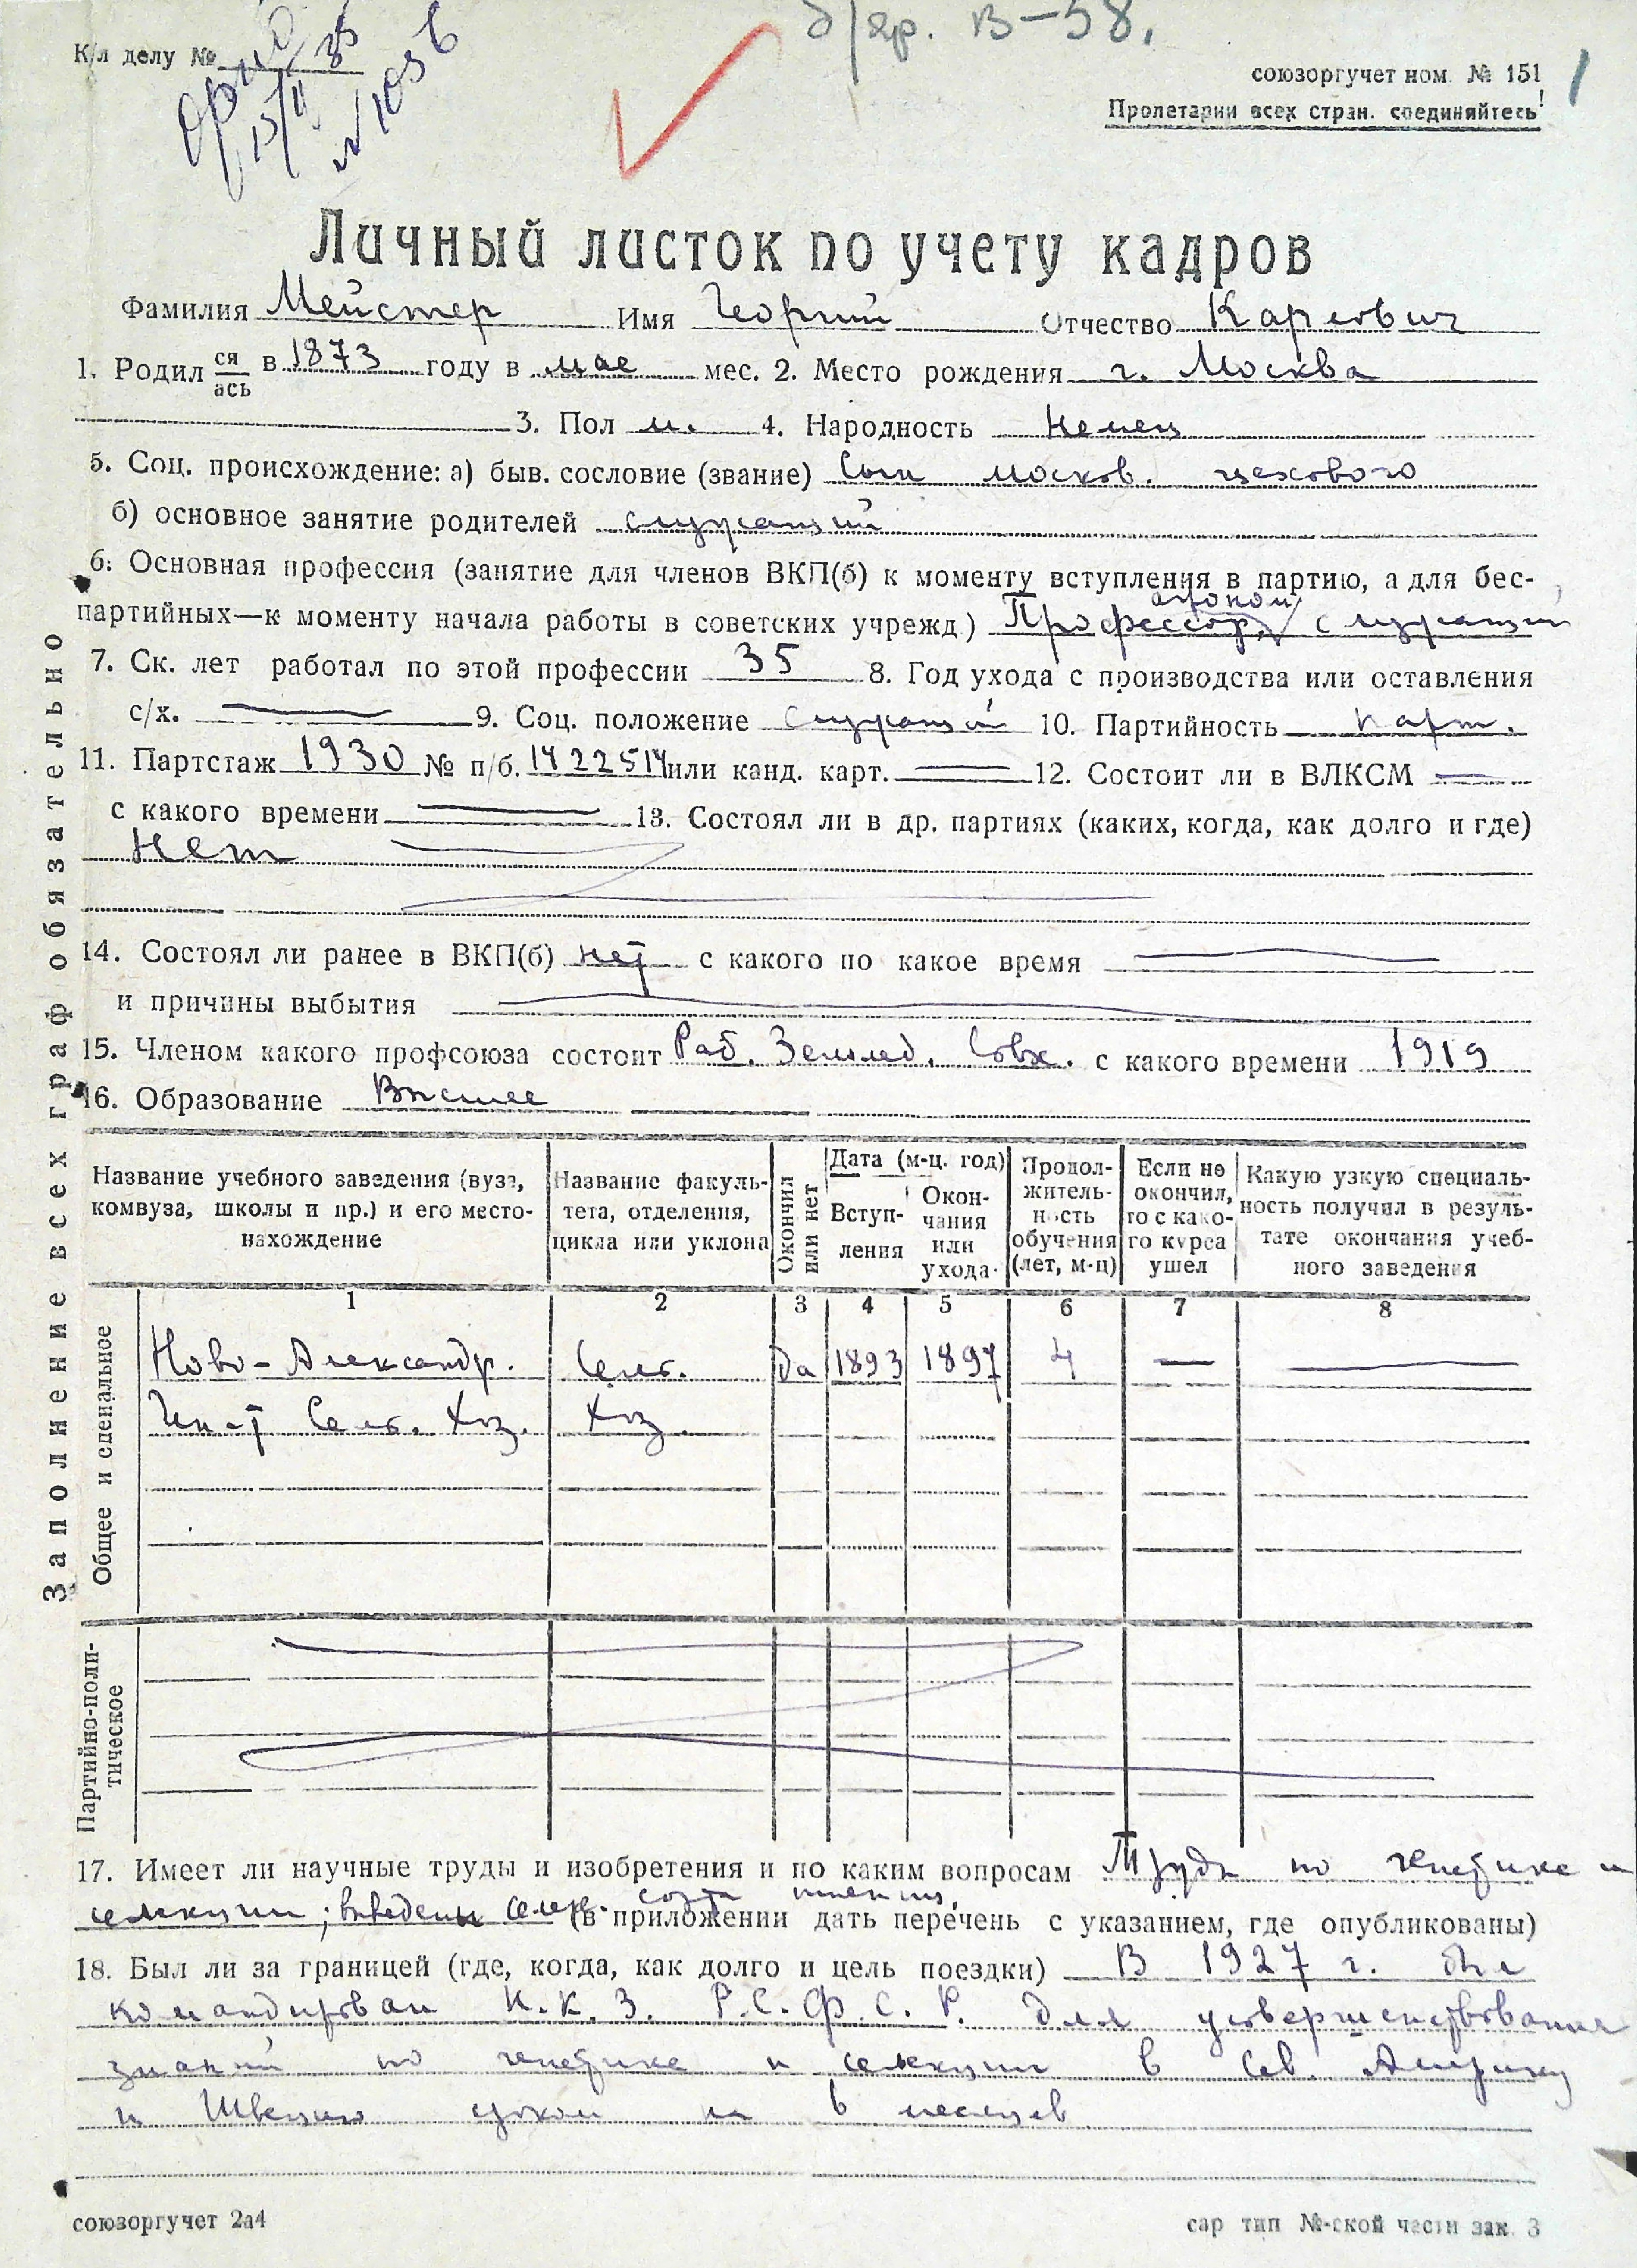 б/яр. В-58.
К/л делу №
15/II 35
№ 1036
союзоргучет ном. № 151
1
Пролетарии всех стран. соединяйтесь!
Личный листок по учету кадров
Фамилия Мейстер Имя Георгий Отчество Карлович
1. Родил ся/ась в 1873 году в мае мес. 2. Место рождения г. Москва
3. Пол м. 4. Народность Немец
5. Соц. происхождение: а) быв. сословие (звание) Сын москов. цехового
б) основное занятие родителей служащий
6. Основная профессия (занятие для членов ВКП(б) к моменту вступления в партию, а для бес-
агроном
партийных—к моменту начала работы в советских учрежд) Профессор, служащий
7. Ск. лет работал по этой профессии 35 8. Год ухода с производства или оставления
с/х. — 9. Соц. положение Служащий 10. Партийность парт.
11. Партстаж 1930 № п/б. 1422514 или канд. карт. — 12. Состоит ли в ВЛКСМ —
с какого времени — 13. Состоял ли в др. партиях (каких, когда, как долго и где)
Нет
14. Состоял ли ранее в ВКП(б) нет с какого по какое время —
и причины выбытия —
15. Членом какого профсоюза состоит Раб. Землед. Совх. с какого времени 1919
16. Образование Высшее
Заполнение всех граф обязательно
Название учебного заведения (вуза, комвуза, школы и пр.) и его место-нахождение
Название факуль-тета, отделения, цикла или уклона
Окончил или нет
Дата (м-ц. год)
Вступ-ления
Окон-чания или ухода.
Продол-житель-ность обучения (лет, м-ц)
Если не окончил, то с како-го курса ушел
Какую узкую специаль-ность получил в резуль-тате окончания учеб-ного заведения
1 2 3 4 5 6 7 8
Общее и специальное
Ново-Александр. Сель. да 1893 1897 4 — —
Ин-т Сель. Хоз. Хоз.
Партийно-поли-тическое
17. Имеет ли научные труды и изобретения и по каким вопросам Труды по генетике и
сорта пшениц,
селекции; выведены селек. (в приложении дать перечень с указанием, где опубликованы)
18. Был ли за границей (где, когда, как долго и цель поездки) В 1927 г. был
командирован Н.К.З. Р.С.Ф.С.Р. для усовершенствования
знаний по генетике и селекции в Сев. Америку
и Швецию сроком на 6 месяцев
союзоргучет 2а4
сар тип №-ской части зак. 3